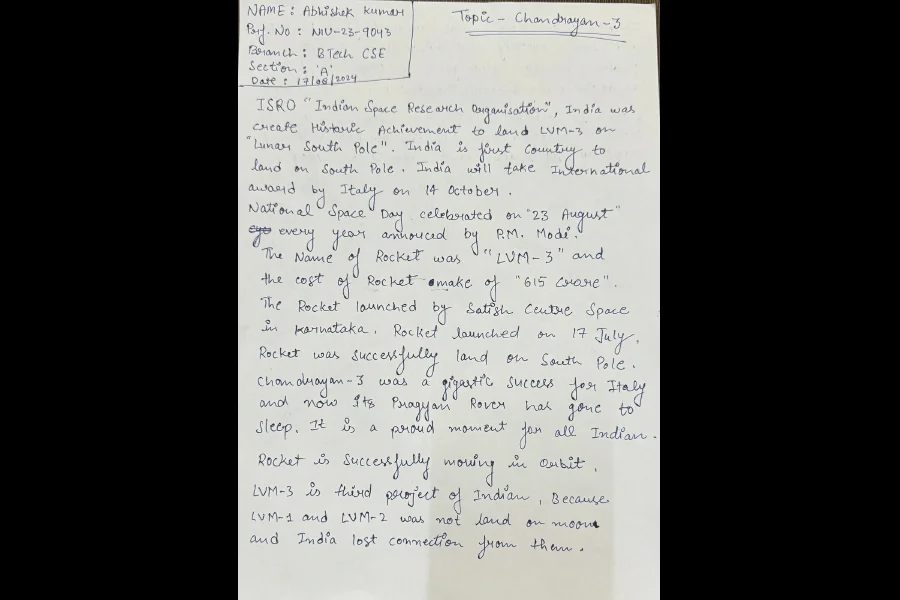 NAME : Abhishek Kumar
Prf. No : NIU-23-9043
Branch : BTech CSE
Section : 'A'
Date : 17/08/2024
Topic - Chandrayan-3
ISRO "Indian Space Research Organisation", India was
create Historic Achievement to land LVM-3 on
"Lunar South Pole". India is first Country to
land on South Pole. India will take International
award by Italy on 14 October.
National Space Day celebrated on "23 August"
every year annouced by P.M. Modi.
The Name of Rocket was "LVM-3" and
the cost of Rocket make of "615 Crore".
The Rocket launched by Satish Centre Space
in Karnataka. Rocket launched on 17 July.
Rocket was successfully land on South Pole.
Chandrayan-3 was a gigastic success for Italy
and now its Pragyan Rover has gone to
sleep. It is a proud moment for all Indian.
Rocket is successfully moving in Orbit.
LVM-3 is third project of Indian, Because
LVM-1 and LVM-2 was not land on moon
and India lost connection from them.